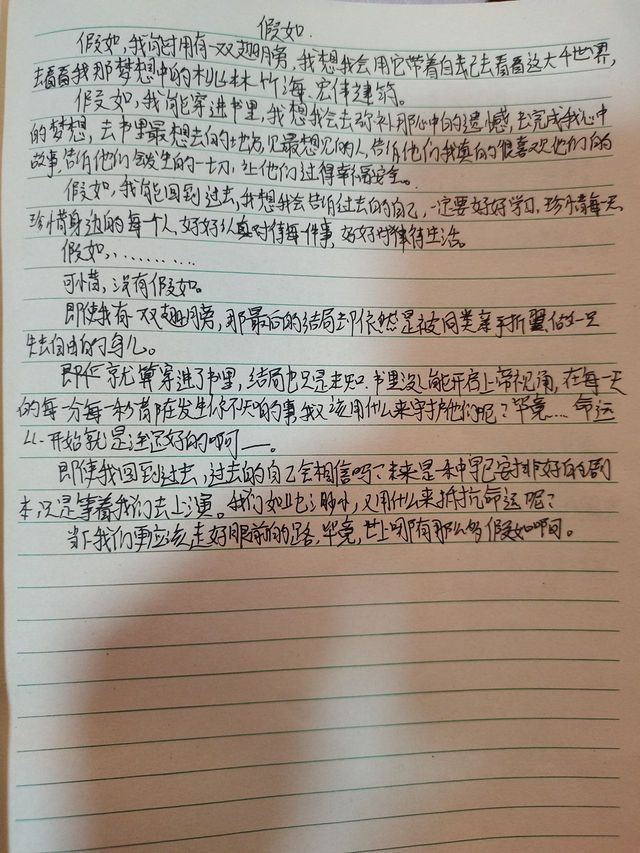 假如.
假如,我能拥有一双翅膀,我想我会用它带着自己去看看这大千世界,
去看看我那梦想中的桃林竹海,宏伟建筑。
假如,我能穿进书里,我想我会去弥补那心中的遗憾,去完成我心中
的梦想,去书里最想去的地方,见最想见的人,告诉他们我真的很喜欢他们的
故事,告诉他们会发生的一切,让他们过得幸福安全。
假如,我能回到过去,我想我会告诉过去的自己,一定要好好学习,珍惜每一天,
珍惜身边的每个人,好好认真对待每一件事,好好对待生活。
假如,…………
可惜,没有假如。
即使我有一双翅膀,那最后的结局却依然是被同类亲手折翼做一只
失去自由的鸟儿。
即使就算穿进了书里,结局也只是未知.书里没人能开启上帝视角,在每一天
的每一分每一秒都在发生你不知的事,我又该用什么来守护他们呢?毕竟…命运
从一开始就是注定好的啊——。
即使我回到过去,过去的自己会相信吗?未来是一种早已安排好的剧
本,只是等着我们去上演。我们如此之渺小,又用什么来抵抗命运呢?
当下我们更应该走好眼前的路,毕竟,世上哪有那么多假如啊。